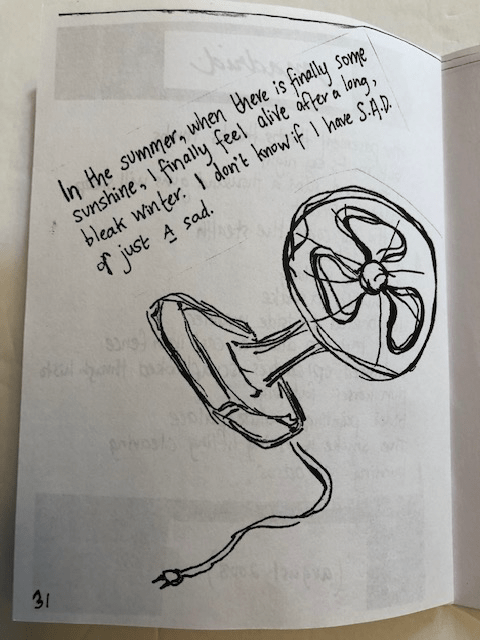 In the summer, when there is finally some
sunshine, I finally feel alive after a long,
bleak winter. I don't know if I have S.A.D.
of just A sad.
31